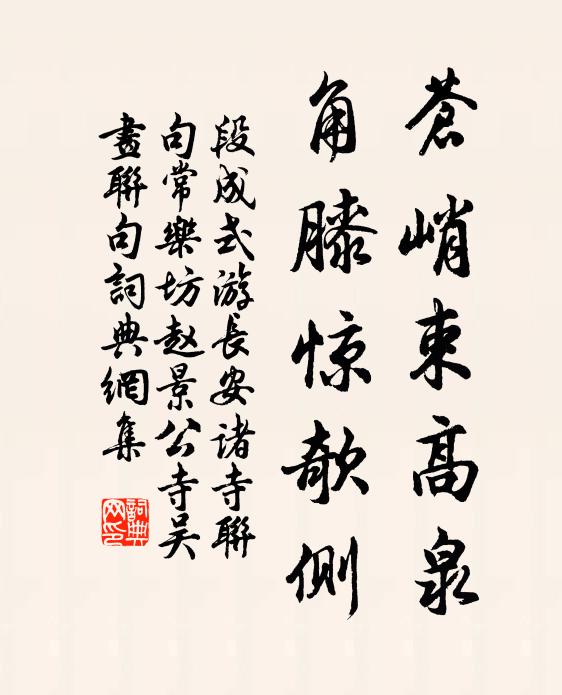 蒼峭束高泉
角膝惊欹側
段成式游長安諸寺聯
句常樂坊赵景公寺吴
畫聯句詞典網集
詞典
网印